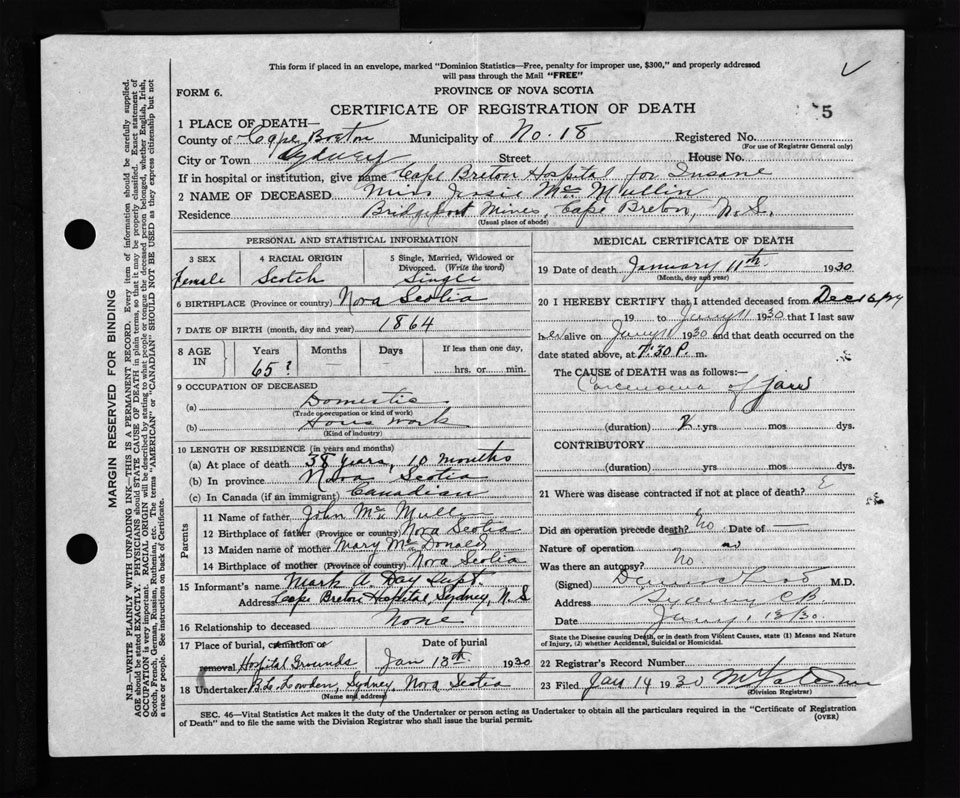 This form if placed in an envelope, marked "Dominion Statistics—Free, penalty for improper use, $300," and properly addressed
will pass through the Mail "FREE"
FORM 6.
PROVINCE OF NOVA SCOTIA
CERTIFICATE OF REGISTRATION OF DEATH
5
1 PLACE OF DEATH—
County of Cape Breton Municipality of No. 18 Registered No.
(For use of Registrar General only)
City or Town Sydney Street House No.
If in hospital or institution, give name Cape Breton Hospital for Insane
2 NAME OF DECEASED Miss Josie McMullin
Residence Bridgeport Mines, Cape Breton, N.S.
(Usual place of abode)
PERSONAL AND STATISTICAL INFORMATION
3 SEX 4 RACIAL ORIGIN 5 Single, Married, Widowed or
Divorced. (Write the word)
Female Scotch Single
6 BIRTHPLACE (Province or country) Nova Scotia
7 DATE OF BIRTH (month, day and year) 1864
8 AGE IN Years Months Days If less than one day,
65? hrs. or min.
9 OCCUPATION OF DECEASED
(a) Domestic
(Trade or occupation or kind of work)
(b) House Work
(Kind of industry)
10 LENGTH OF RESIDENCE (in years and months)
(a) At place of death 38 years, 10 months
(b) In province Nova Scotia
(c) In Canada (if an immigrant) Canadian
Parents
11 Name of father John
12 Birthplace of father (Province or country) Nova Scotia
13 Maiden name of mother Mary McDonald
14 Birthplace of mother (Province or country) Nova Scotia
15 Informant's name Mark A. Day Supt.
Address Cape Breton Hospital, Sydney, N.S
16 Relationship to deceased None
17 Place of burial, cremation or Date of burial
removal Hospital Grounds Jan 13th 1930
18 Undertaker Sydney, Nova Scotia
(Name and address)
MEDICAL CERTIFICATE OF DEATH
19 Date of death January 11th 1930
(Month, day and year)
20 I HEREBY CERTIFY that I attended deceased from Dec
19 to Jany 11 1930 that I last saw
her alive on Jany 11 1930 and that death occurred on the
date stated above, at 7.30 P. m.
The CAUSE of DEATH was as follows:—
Carcenoma of Jaw
(duration) 2 yrs mos dys.
CONTRIBUTORY
(duration) yrs mos dys.
21 Where was disease contracted if not at place of death?
Did an operation precede death? No Date of —
Nature of operation
Was there an autopsy? No
(Signed) M.D.
Address Sydney C.B.
Date Jany. 13/30
State the Disease causing Death, or in death from Violent Causes, state (1) Means and Nature
of Injury, (2) whether Accidental, Suicidal or Homicidal.
22 Registrar's Record Number
23 Filed Jan 14 1930
(Division Registrar)
SEC. 46—Vital Statistics Act makes it the duty of the Undertaker or person acting as Undertaker to obtain all the particulars required in the "Certificate of Registration
of Death" and to file the same with the Division Registrar who shall issue the burial permit.
(OVER)
MARGIN RESERVED FOR BINDING
N.B.—WRITE PLAINLY WITH UNFADING INK—THIS IS A PERMANENT RECORD. Every item of information should be carefully supplied.
AGE should be stated EXACTLY. PHYSICIANS should STATE CAUSE OF DEATH in plain terms, so that it may be properly classified. Exact statement of
OCCUPATION is very important. RACIAL ORIGIN will be described by stating to what people or tongue the deceased person belonged, whether English, Irish,
Scotch, French, German, Russian, Ruthenian, etc. The terms "AMERICAN" or "CANADIAN" SHOULD NOT BE USED as they express citizenship but not
a race or people. See instructions on back of Certificate.